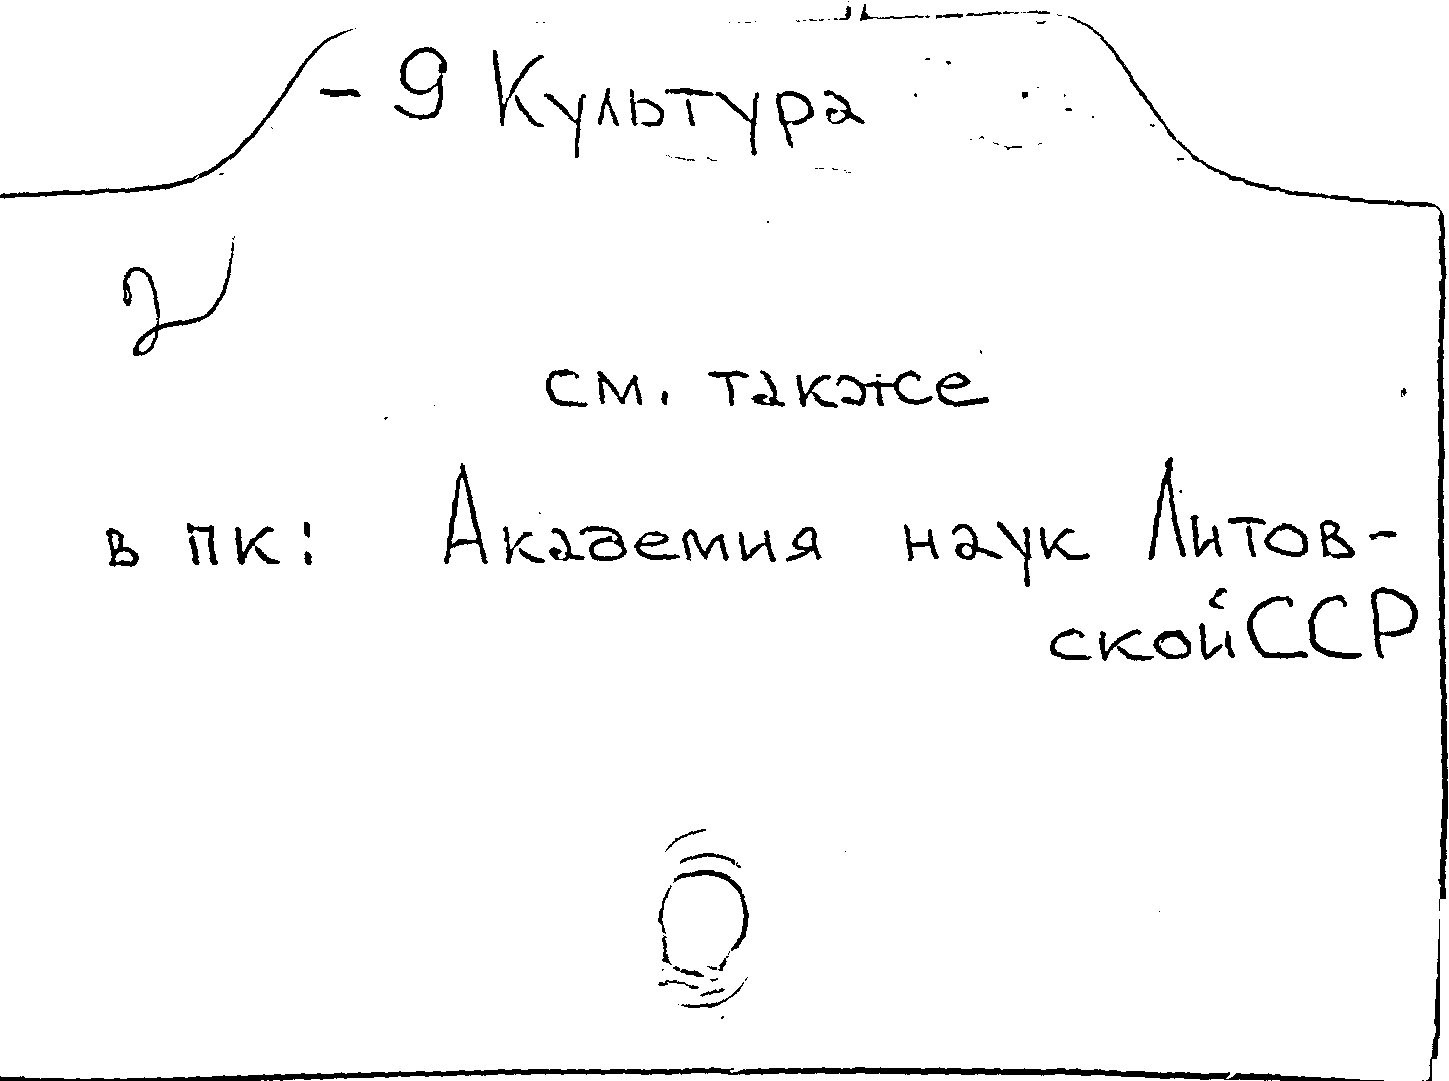 - 9 Культура
см. также
в пк: Академия наук Литов-
ской ССР